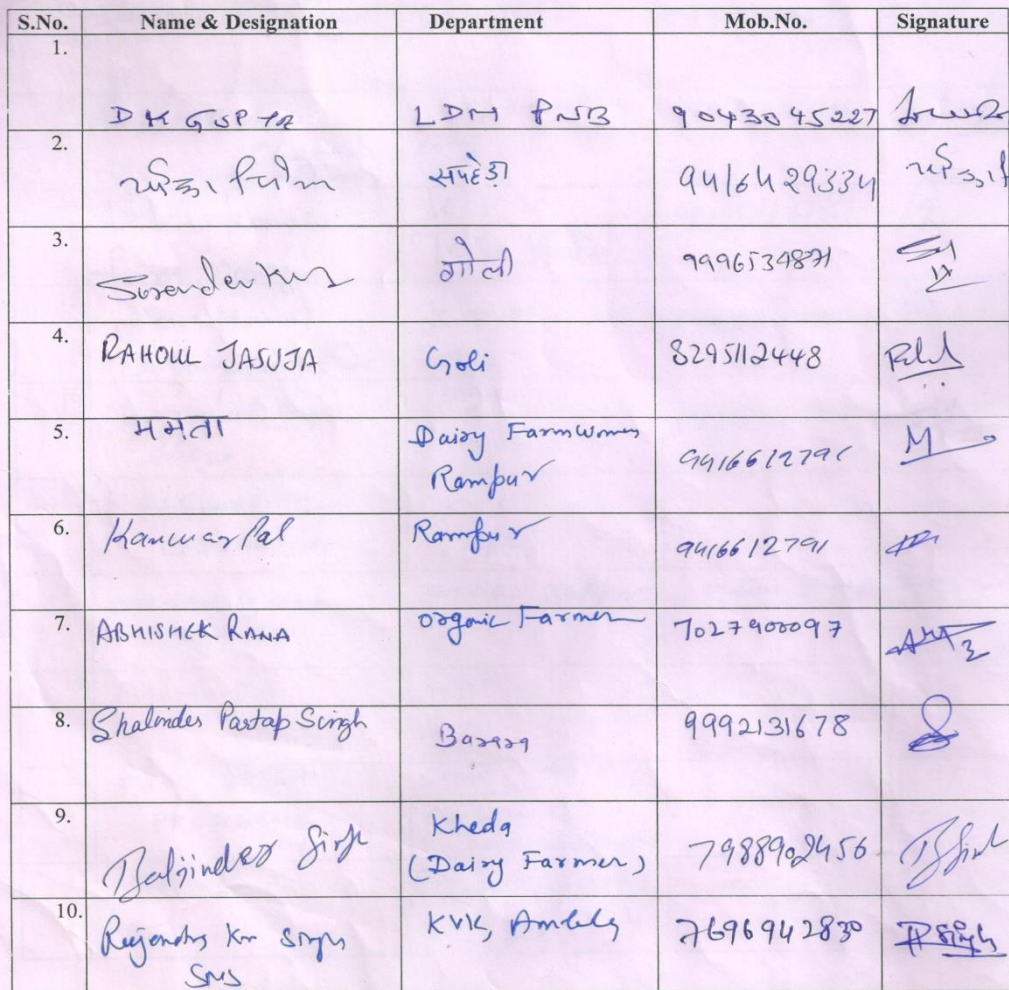 S.No. Name & Designation Department Mob.No. Signature
1. D K GUPTA LDM PNB 9043045227
2. सपेहड़ा 9416429334
3. Surender Kum गोली 9996539871
4. RAHOUL JASUJA Goli 8295112448
5. ममता Dairy Farmwomen
Rampur 9416612791 M
6. Kanwar Pal Rampur 9416612791
7. ABHISHEK RANA organic Farmer 7027900097
8. Shalinder Partap Singh Barara 9992131678
9. Baljinder Singh Kheda
(Dairy Farmer) 7988902456 BSingh
10. Rajendra Kr Singh KVK, Ambala 7696942830 RSingh
SMS